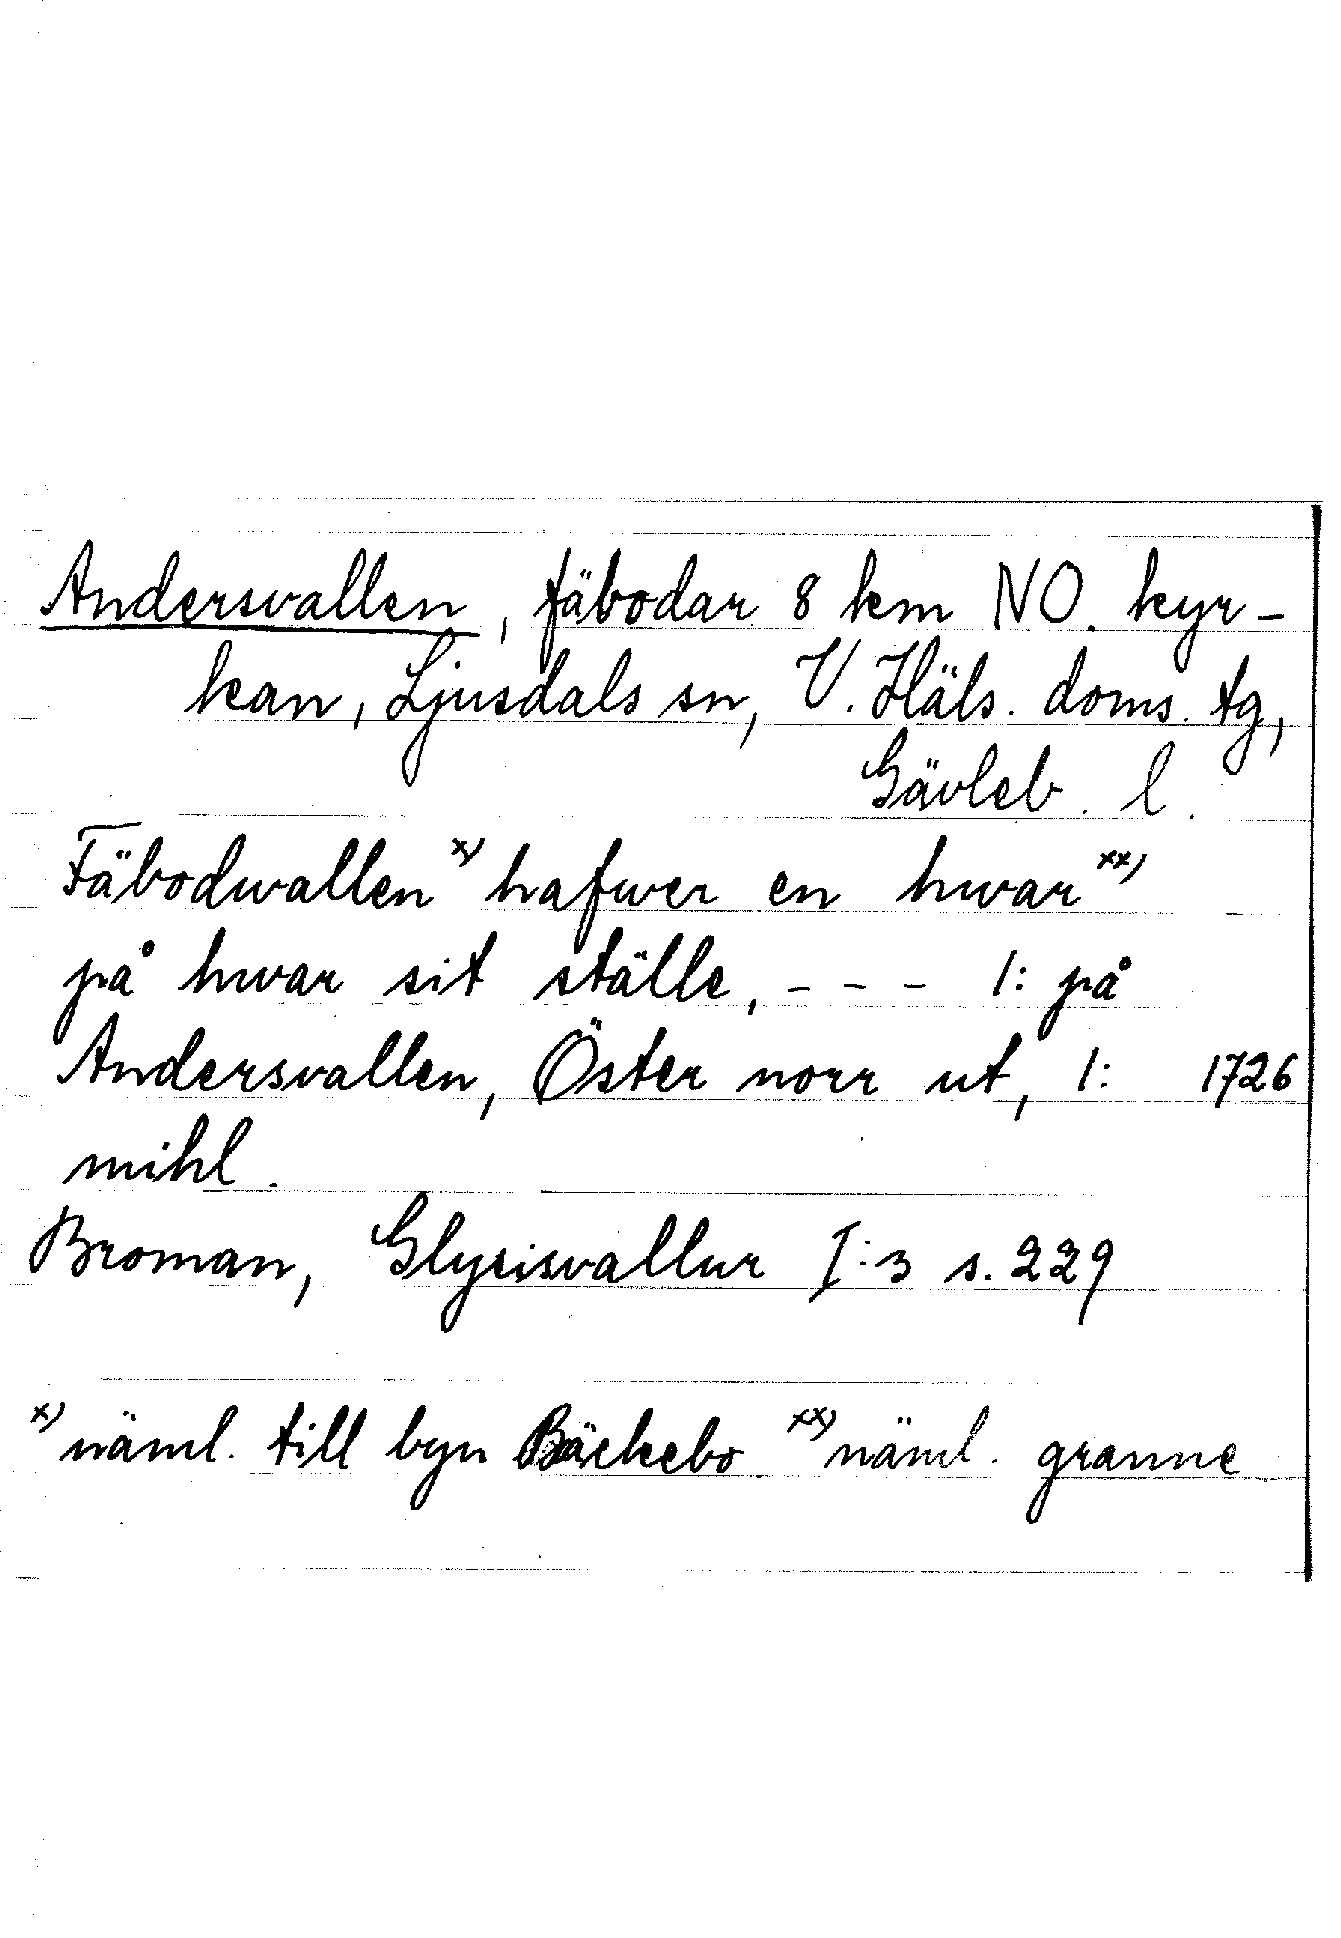 Andersvallen, fäbodar 8 km NO. kyr-
kan, Ljusdals sn, V. Häls. doms. tg,
Gävleb. l.
Fäbodwallen x) hafwer en hwar xx)
på hwar sit ställe, - - - 1: på
Andersvallen, Öster norr ut, 1: 1726
mihl.
Broman, Glysisvallur I:3 s. 229
x) näml. till byn Bäckebo xx) näml. granne